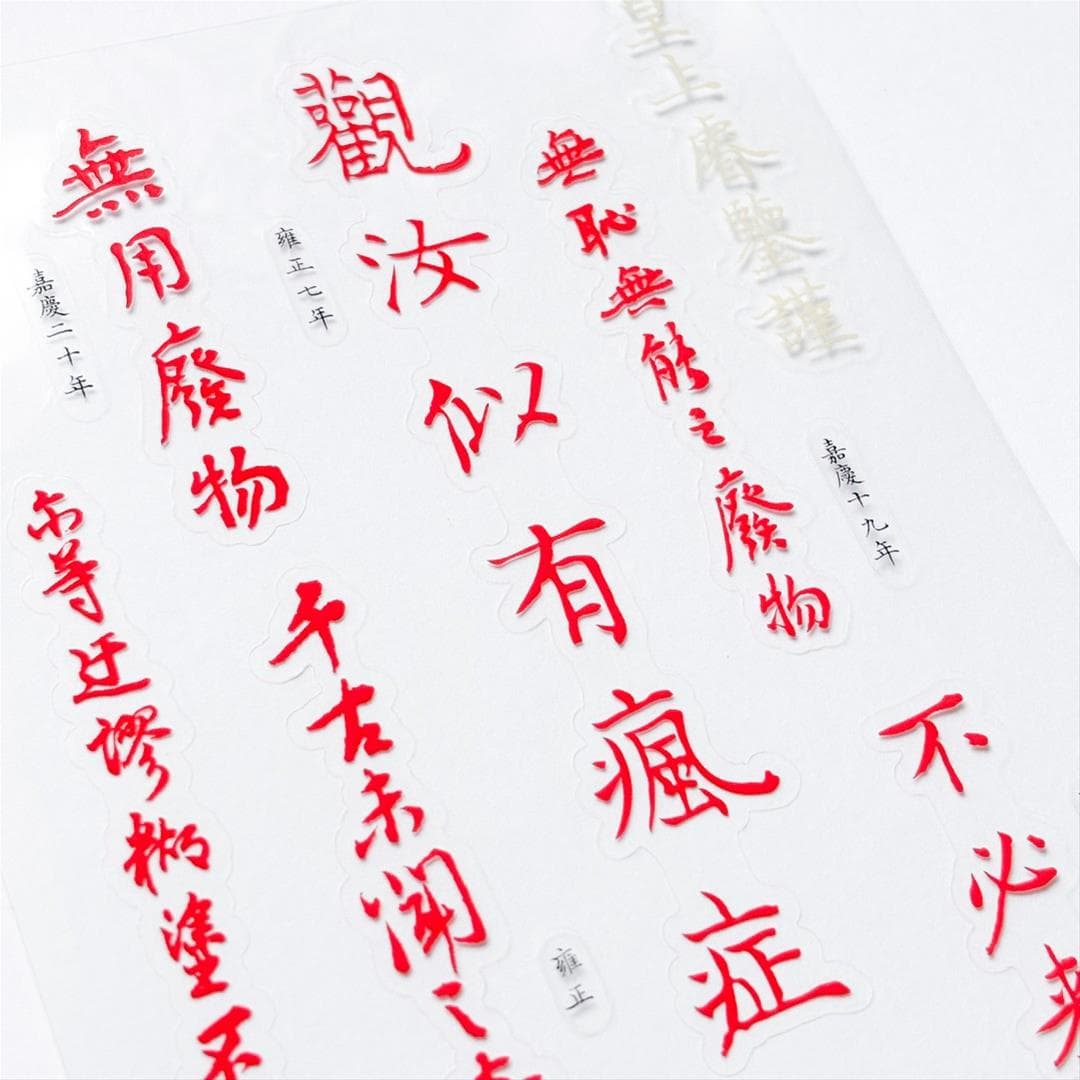 皇上睿鑒謹
嘉慶十九年
無恥無能之廢物
不必
觀汝似有瘋症
雍正七年
雍正
千古未聞之
無用廢物
嘉慶二十年
尔等迂謬糊塗不